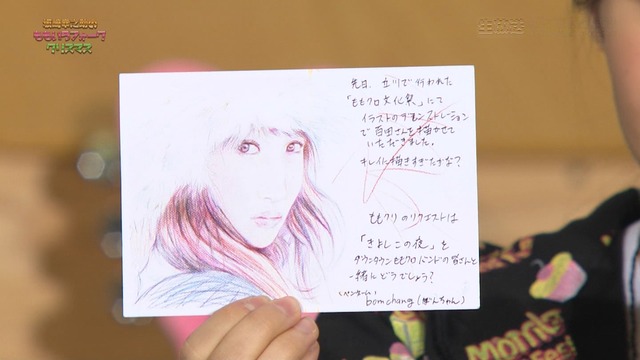 坂崎幸之助の
ももいろフォーク
クリスマス
生放送
先日、立川で行われた
「ももクロ文化祭」にて
イラストのデモンストレーション
で百田さんを描かせて
いただきました。
キレイに描きすぎたかな?
ももクリのリクエストは
「きよしこの夜」を
ダウンタウンももクロバンドの皆さんと
一緒にどうでしょう?
(ペンネーム)
bomchang(ぼんちゃん)